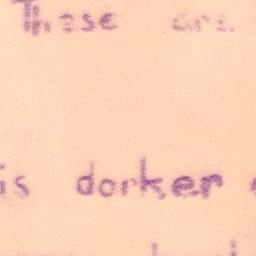 These are
is darker